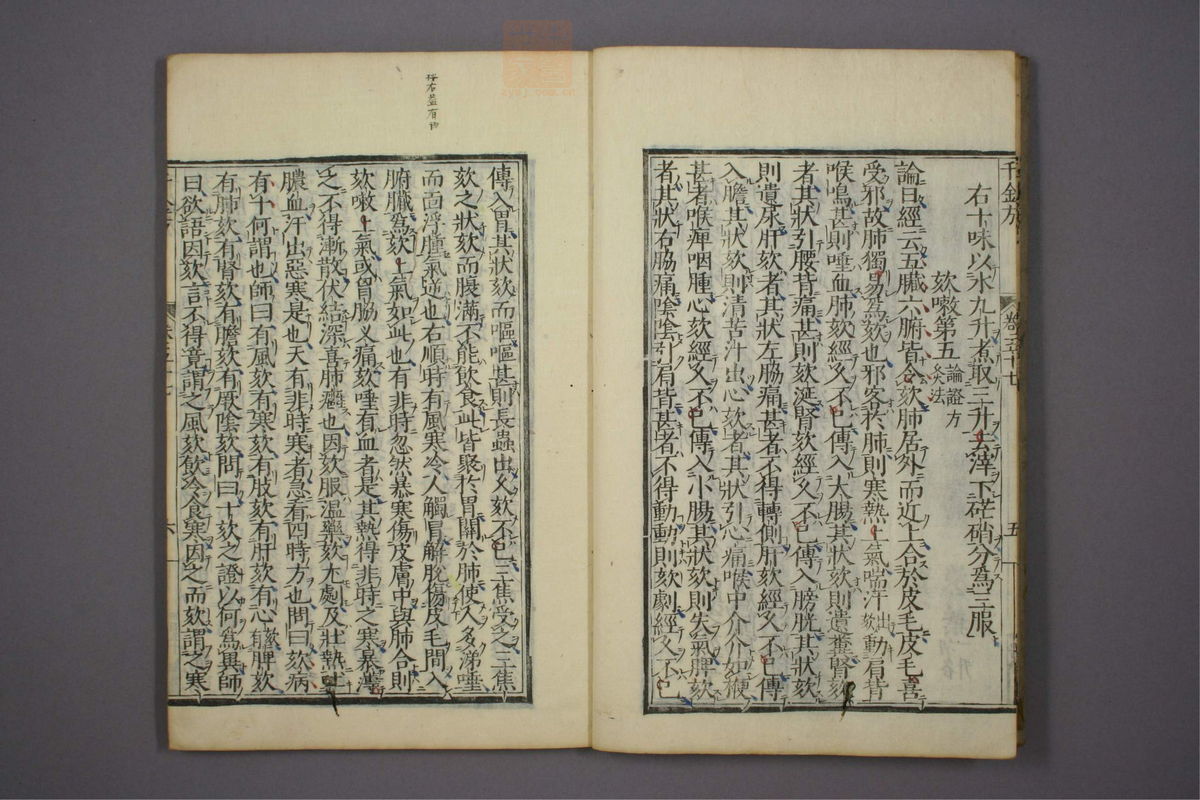 右十味以水九升煮取三升去滓下芒硝分為三服
欬嗽第五
論證方
灸法
論曰經云五臟六腑皆令欬肺居外而近上合於皮毛皮毛喜
受邪故肺獨易為欬也邪客於肺則寒熱上氣喘汗出欬動肩背
喉鳴甚則唾血肺欬經久不已傳入大腸其狀欬則遺糞腎欬
者其狀引腰背痛甚則欬涎腎欬經久不已傳入膀胱其狀欬
則遺尿肝欬者其狀左脇痛甚者不得轉側肝欬經久不已傳
入膽其狀欬則清苦汁出心欬者其狀引心痛喉中介介如鞕
甚者喉痺咽腫心欬經久不已傳入小腸其狀欬則失氣脾欬
者其狀右脇痛陰陰引肩背甚者不得動動則欬劇經久不已
傳入胃其狀欬而嘔嘔甚則長蟲出久欬不已三焦受之三焦
欬之狀欬而腹滿不能飲食此皆聚於胃關於肺使人多涕唾
而面浮腫氣逆也右順時有風寒冷人觸冒解脫傷皮毛間入
腑臟為欬上氣如此也有非時忽然暴寒傷皮膚中與肺合則
欬嗽上氣或胷脇叉痛欬唾有血者是其熱得非時之寒暴薄
之不得漸散伏結深喜肺癰也因欬服溫藥欬尤劇及壯熱吐
膿血汗出惡寒是也天有非時寒者急看四時方也問曰欬病
有十何謂也師曰有風欬有寒欬有肢欬有肝欬有心欬有脾欬
有肺欬有腎欬有膽欬有厥陰欬問曰十欬之證以何為異師
曰欲語因欬言不得竟謂之風欬飲冷食寒因之而欬謂之寒
五
六